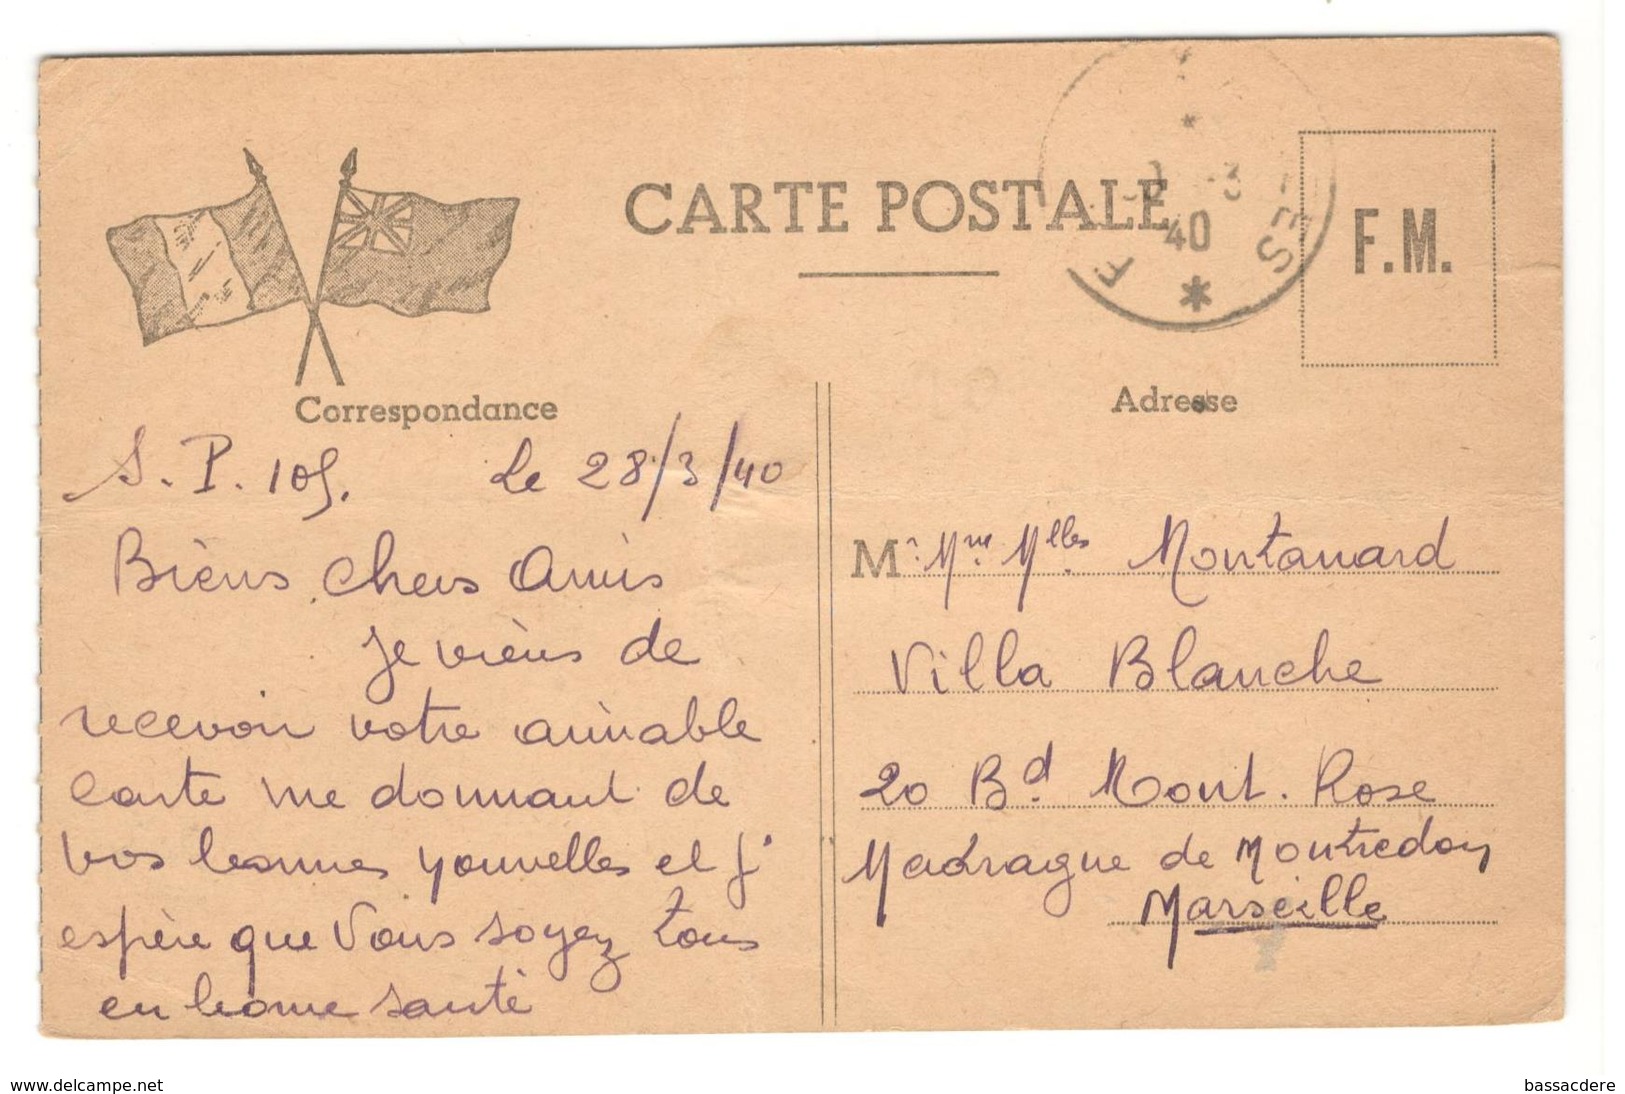 CARTE POSTALE
F.M.
-3
40
ES
Correspondance
Adresse
S. P. 109. Le 28/3/40
Bièns chers Amis
Je vièns de
recevoir votre aimable
carte me donnant de
vos bonnes nouvelles et j'
espère que Vous soyez tous
en bonne santé
Mr. Mme Mlles Montanard
Villa Blanche
20 Bd. Mont. Rose
Madrague de Montredon
Marseille
www.delcampe.net
bassacdere